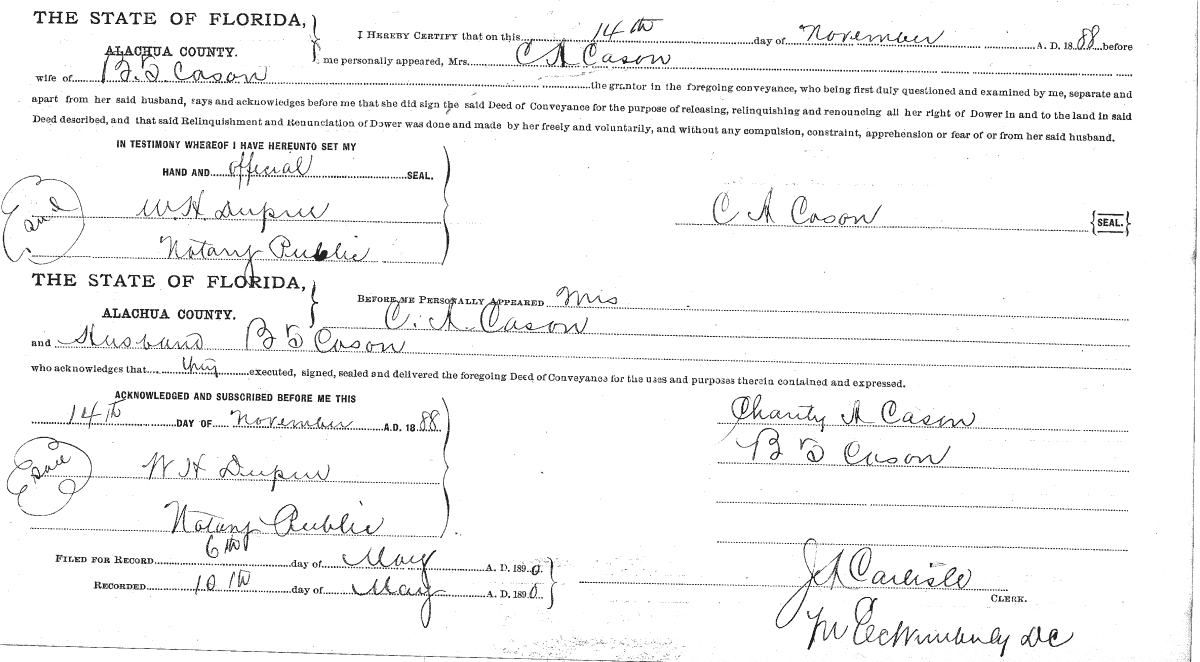 THE STATE OF FLORIDA,
ALACHUA COUNTY.
I HEREBY CERTIFY that on this 14th day of November A. D. 1888 before
me personally appeared, Mrs. C A Cason
wife of B. Cason the grantor in the foregoing conveyance, who being first duly questioned and examined by me, separate and
apart from her said husband, says and acknowledges before me that she did sign the said Deed of Conveyance for the purpose of releasing, relinquishing and renouncing all her right of Dower in and to the land in said
Deed described, and that said Relinquishment and Renunciation of Dower was done and made by her freely and voluntarily, and without any compulsion, constraint, apprehension or fear of or from her said husband.
IN TESTIMONY WHEREOF I HAVE HEREUNTO SET MY
HAND AND official SEAL.
W. H. Dupree
Notary Public
C A Cason {SEAL.}
THE STATE OF FLORIDA,
ALACHUA COUNTY.
BEFORE ME PERSONALLY APPEARED Mrs
C. A. Cason
and Husband B Cason
who acknowledges that they executed, signed, sealed and delivered the foregoing Deed of Conveyance for the uses and purposes therein contained and expressed.
ACKNOWLEDGED AND SUBSCRIBED BEFORE ME THIS
14th DAY OF November A.D. 1888
W H Dupree
Notary Public
Charity A Cason
B Cason
FILED FOR RECORD 6th day of May A. D. 1890.
RECORDED 10th day of May A. D. 1890
J A Carlisle
CLERK.
DC